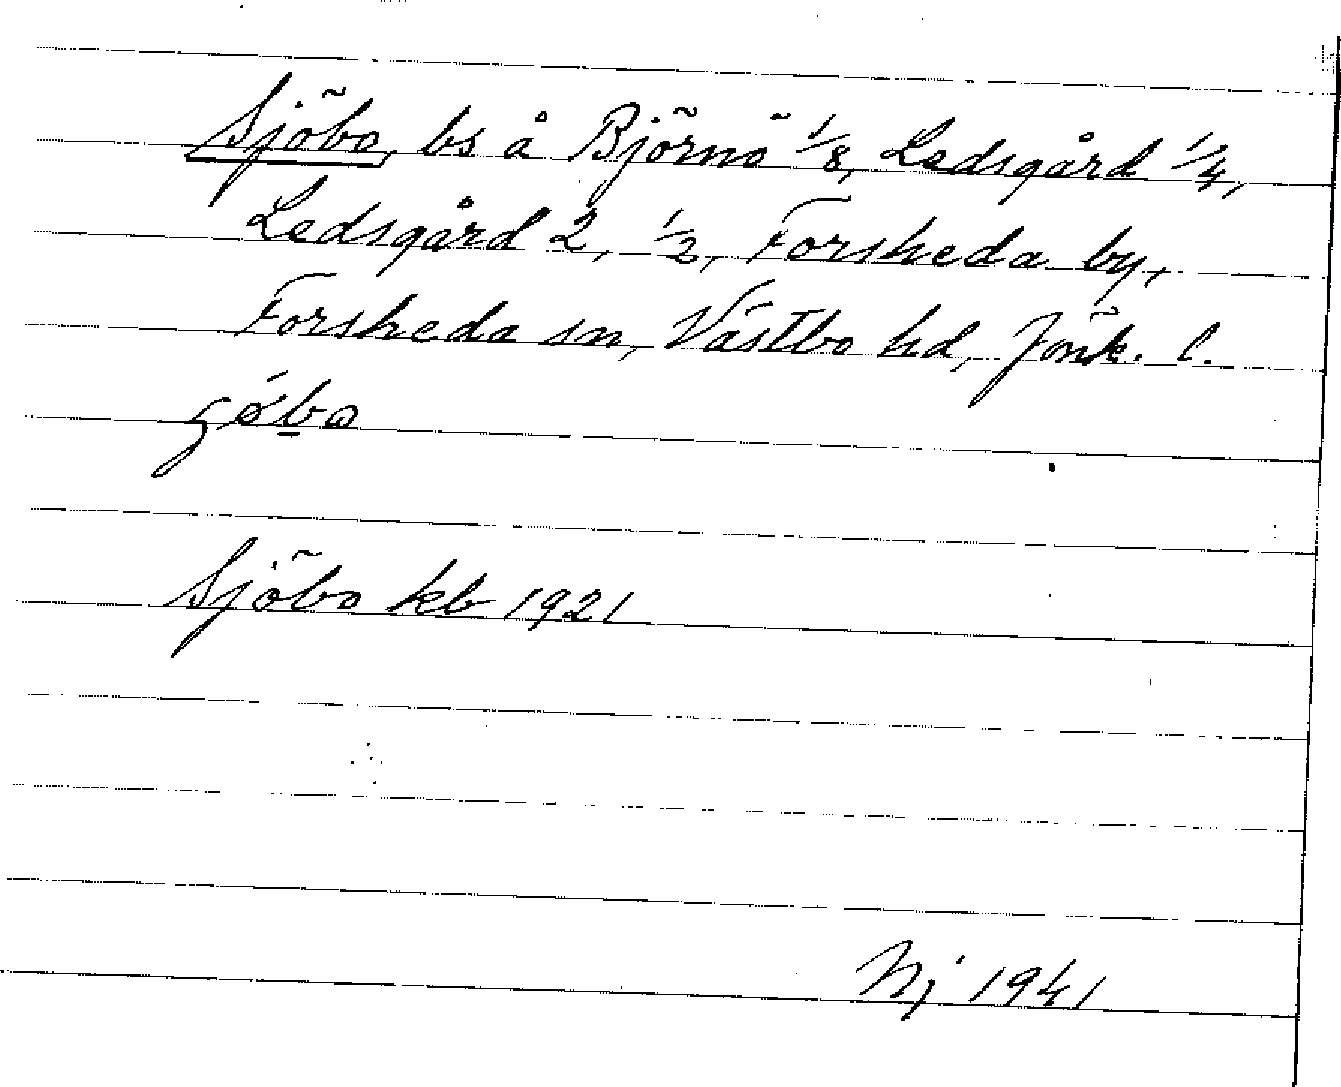 Sjöbo, bs å Björnö 1/8, Ledsgård 1/4,
Ledsgård 2, 1/2, Forsheda by,
Forsheda sn, Västbo hd, Jönk. l.
Sjöbo kb 1921
Nj 1941